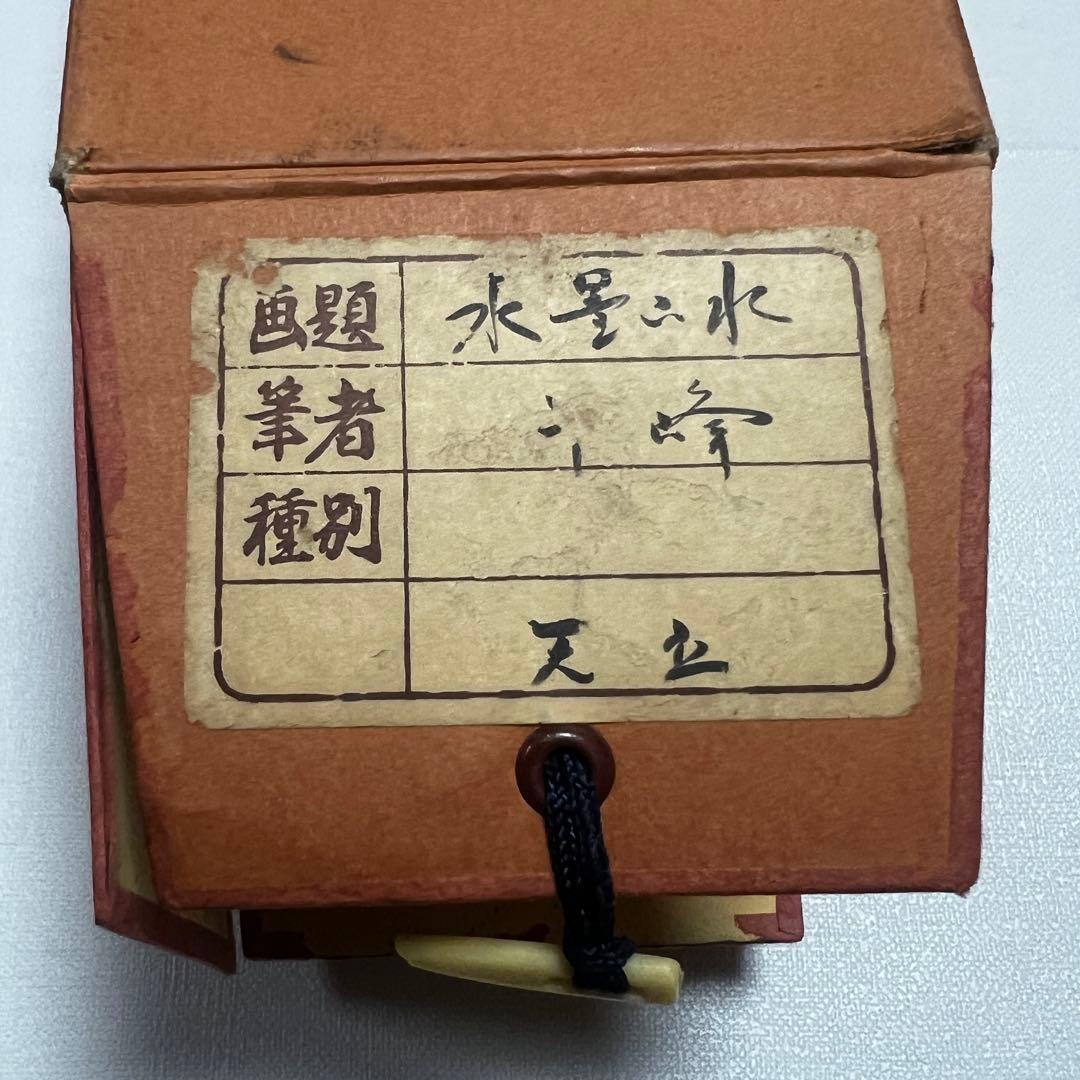 画題 水墨山水
筆者 峰
種別
天 立